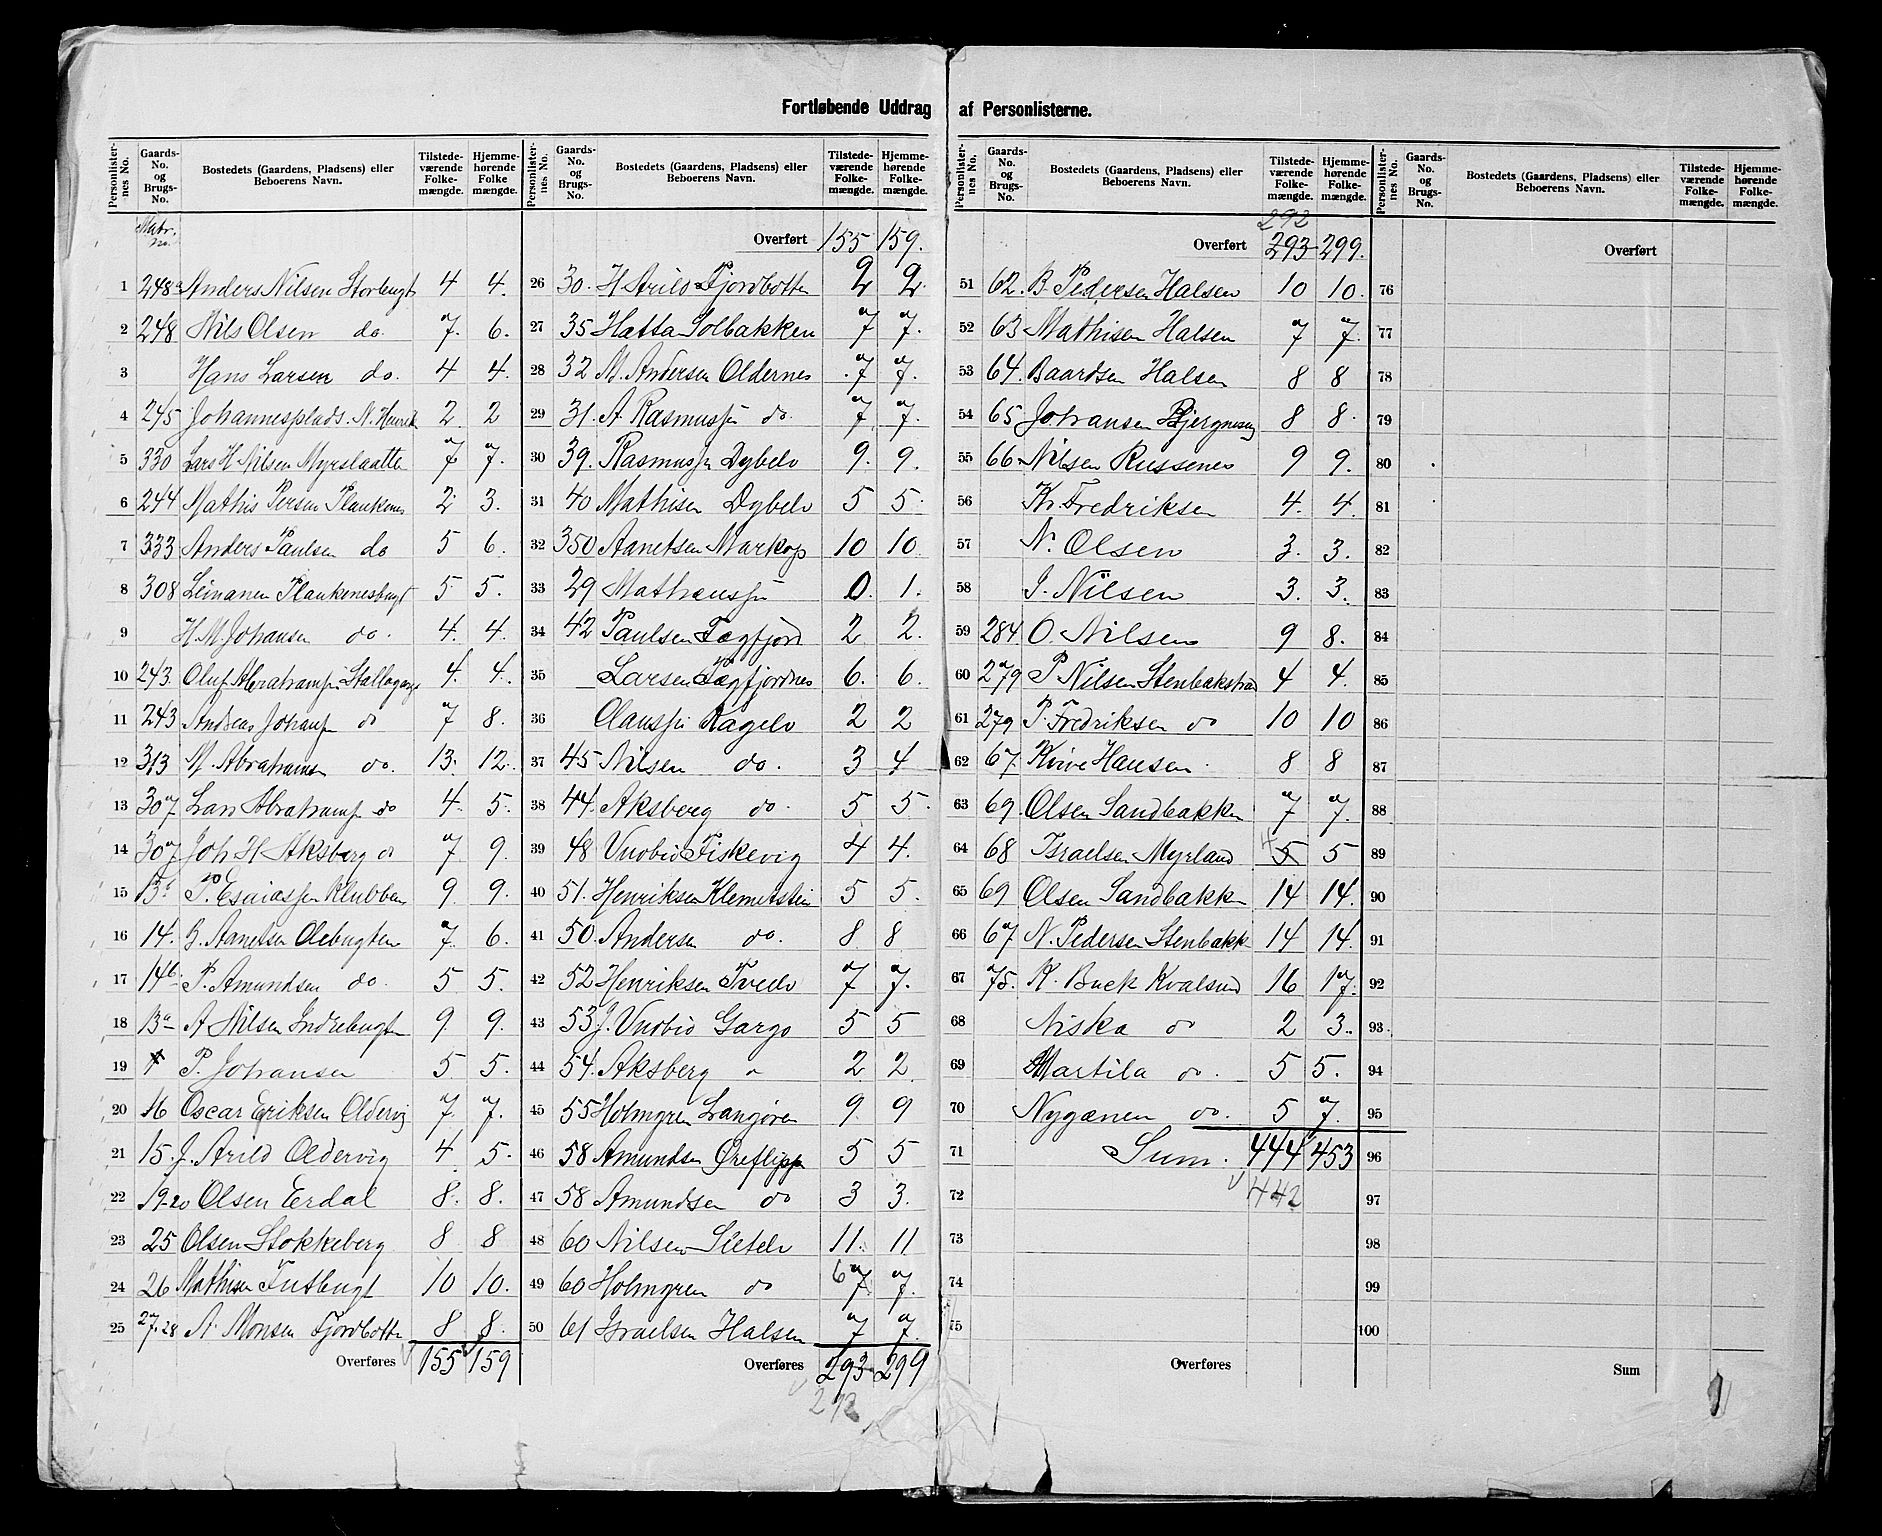 Fortløbende Uddrag af Personlisterne.
Personlister-nes No. Gaards-No. og Brugs-No. Bostedets (Gaardens, Pladsens) eller Beboerens Navn. Tilstede-værende Folke-mængde. Hjemme-hørende Folke mængde.
Matr. no.
1 248a Anders Nilsen Storbugt 4 4.
2 248 Nils Olsen do. 7. 6.
3 Hans Larsen do. 4 4.
4 245 Johannesplads. N. Henrik 2 2
5 330 Lars H Nilsen Myrslaatte 7 7.
6 244 Mathis Persen Plankenes 2 3.
7 333 Anders Paulsen do 5 6.
8 308 Leinanen Plankenesbugt 5 5.
9 H. M. Johansen do. 4. 4.
10 243. Oluf Abrahamsen Stallogarge 4. 4.
11 243 Andreas Johansen do 7 8.
12 313 M. Abrahamsen do. 13. 12.
13 307 Lars Abrahamsen do 4. 5.
14 307 Joh H Aksberg do 7 9.
15 13 P. Esaiassen Klubben 9 9.
16 14. G. Aanetsen Olebugten 7. 6.
17 14b P. Amundsen do. 5 5.
18 13a A Nilsen Indrebugten 9. 9.
19 P. Johansen 5 5.
20 16 Oscar Eriksen Oldervig 7. 7.
21 15. J. Arild Oldervig 4 5.
22 19-20 Olsen Erdal 8. 8.
23 25 Olsen Stokkeberg 8 8
24 26 Mathisen Futbugt 10 10.
25 27.28 A Monsen Fjordbotten 8 8.
Overføres 155 159
Personlister-nes No. Gaards-No. og Brugs-No. Bostedets (Gaardens, Pladsens) eller Beboerens Navn. Tilstede-værende Folke-mængde. Hjemme-hørende Folke-mængde.
Overført 155 159.
26 30. H. Arild Fjordbotten 2 2.
27 35 Hatta Solbakken 7 7.
28 32 M. Andersen Oldernes 7 7.
29 31. A. Rasmussen do. 7 7.
30 39. Rasmussen Dybelv 9. 9.
31 40 Mathisen Dybelv 5 5.
32 350 Aanetsen Markop 10 10.
33 29 Matheussen 0. 1.
34 42 Paulsen Fægfjord 2 2.
35 Larsen Fægfjordnes 6. 6.
36 Claussen Ragelv 2 2
37 45 Nilsen do. 3 4
38 44. Aksberg do. 5 5.
39 48 Vuobio Fiskevig 4 4.
40 51. Henriksen Klemetstein 5 5.
41 50. Andersen do. 8 8
42 52 Henriksen Tvedv 7 7.
43 53 J. Vuobio Gargo 5 5
44 54. Aksberg " 2 2.
45 55 Holmgren Langøren 9. 9
46 58 Amundsen Øreflippen 5 5
47 58 Amundsen do 3 3.
48 60 Nilsen Sletelv 11. 11
49 60 Holmgren do 6 7 7.
50 61 Israelsen Halsen 7 7.
Overføres 293 299
292
Personlister-nes No. Gaards-No. og Brugs-No. Bostedets (Gaardens, Pladsens) eller Beboerens Navn. Tilstede-værende Folke-mængde. Hjemme-hørende Folke-mængde.
292
Overført 293 299.
51 62. B. Pedersen Halsen 10 10.
52 63 Mathisen Halsen 7 7.
53 64. Baardsen Halsen 8 8
54 65 Johansen Bjergnesig 8 8.
55 66 Nilsen Russenes 9 9.
56 Kr. Fredriksen 4. 4.
57 N. Olsen 3. 3.
58 J. Nilsen 3. 3.
59 284 O. Nilsen 9 8.
60 279 P Nilsen Stenbakstrand 4 4.
61 279 P. Fredriksen do 10 10
62 67 Kvive Hansen. 8 8
63 69. Olsen Sandbakken 7 7.
64 68 Israelsen Myrland 4 5 5
65 69 Olsen Sandbakk 14 14.
66 67 N. Pedersen Stenbakk 14 14.
67 75. K. Buck Kvalsund 16 17.
68 Niska do 2 3.
69 Martila do. 5 5.
70 Nygænen do. 5 7.
71 Sum. 444 453
72 442
73
74
75
Overføres
Personlister-nes No. Gaards-No. og Brugs-No. Bostedets (Gaardens, Pladsens) eller Beboerens Navn. Tilstede-værende Folke-mængde. Hjemme-hørende Folke-mængde.
Overført
76
77
78
79
80
81
82
83
84
85
86
87
88
89
90
91
92
93
94
95
96
97
98
99
100
Sum